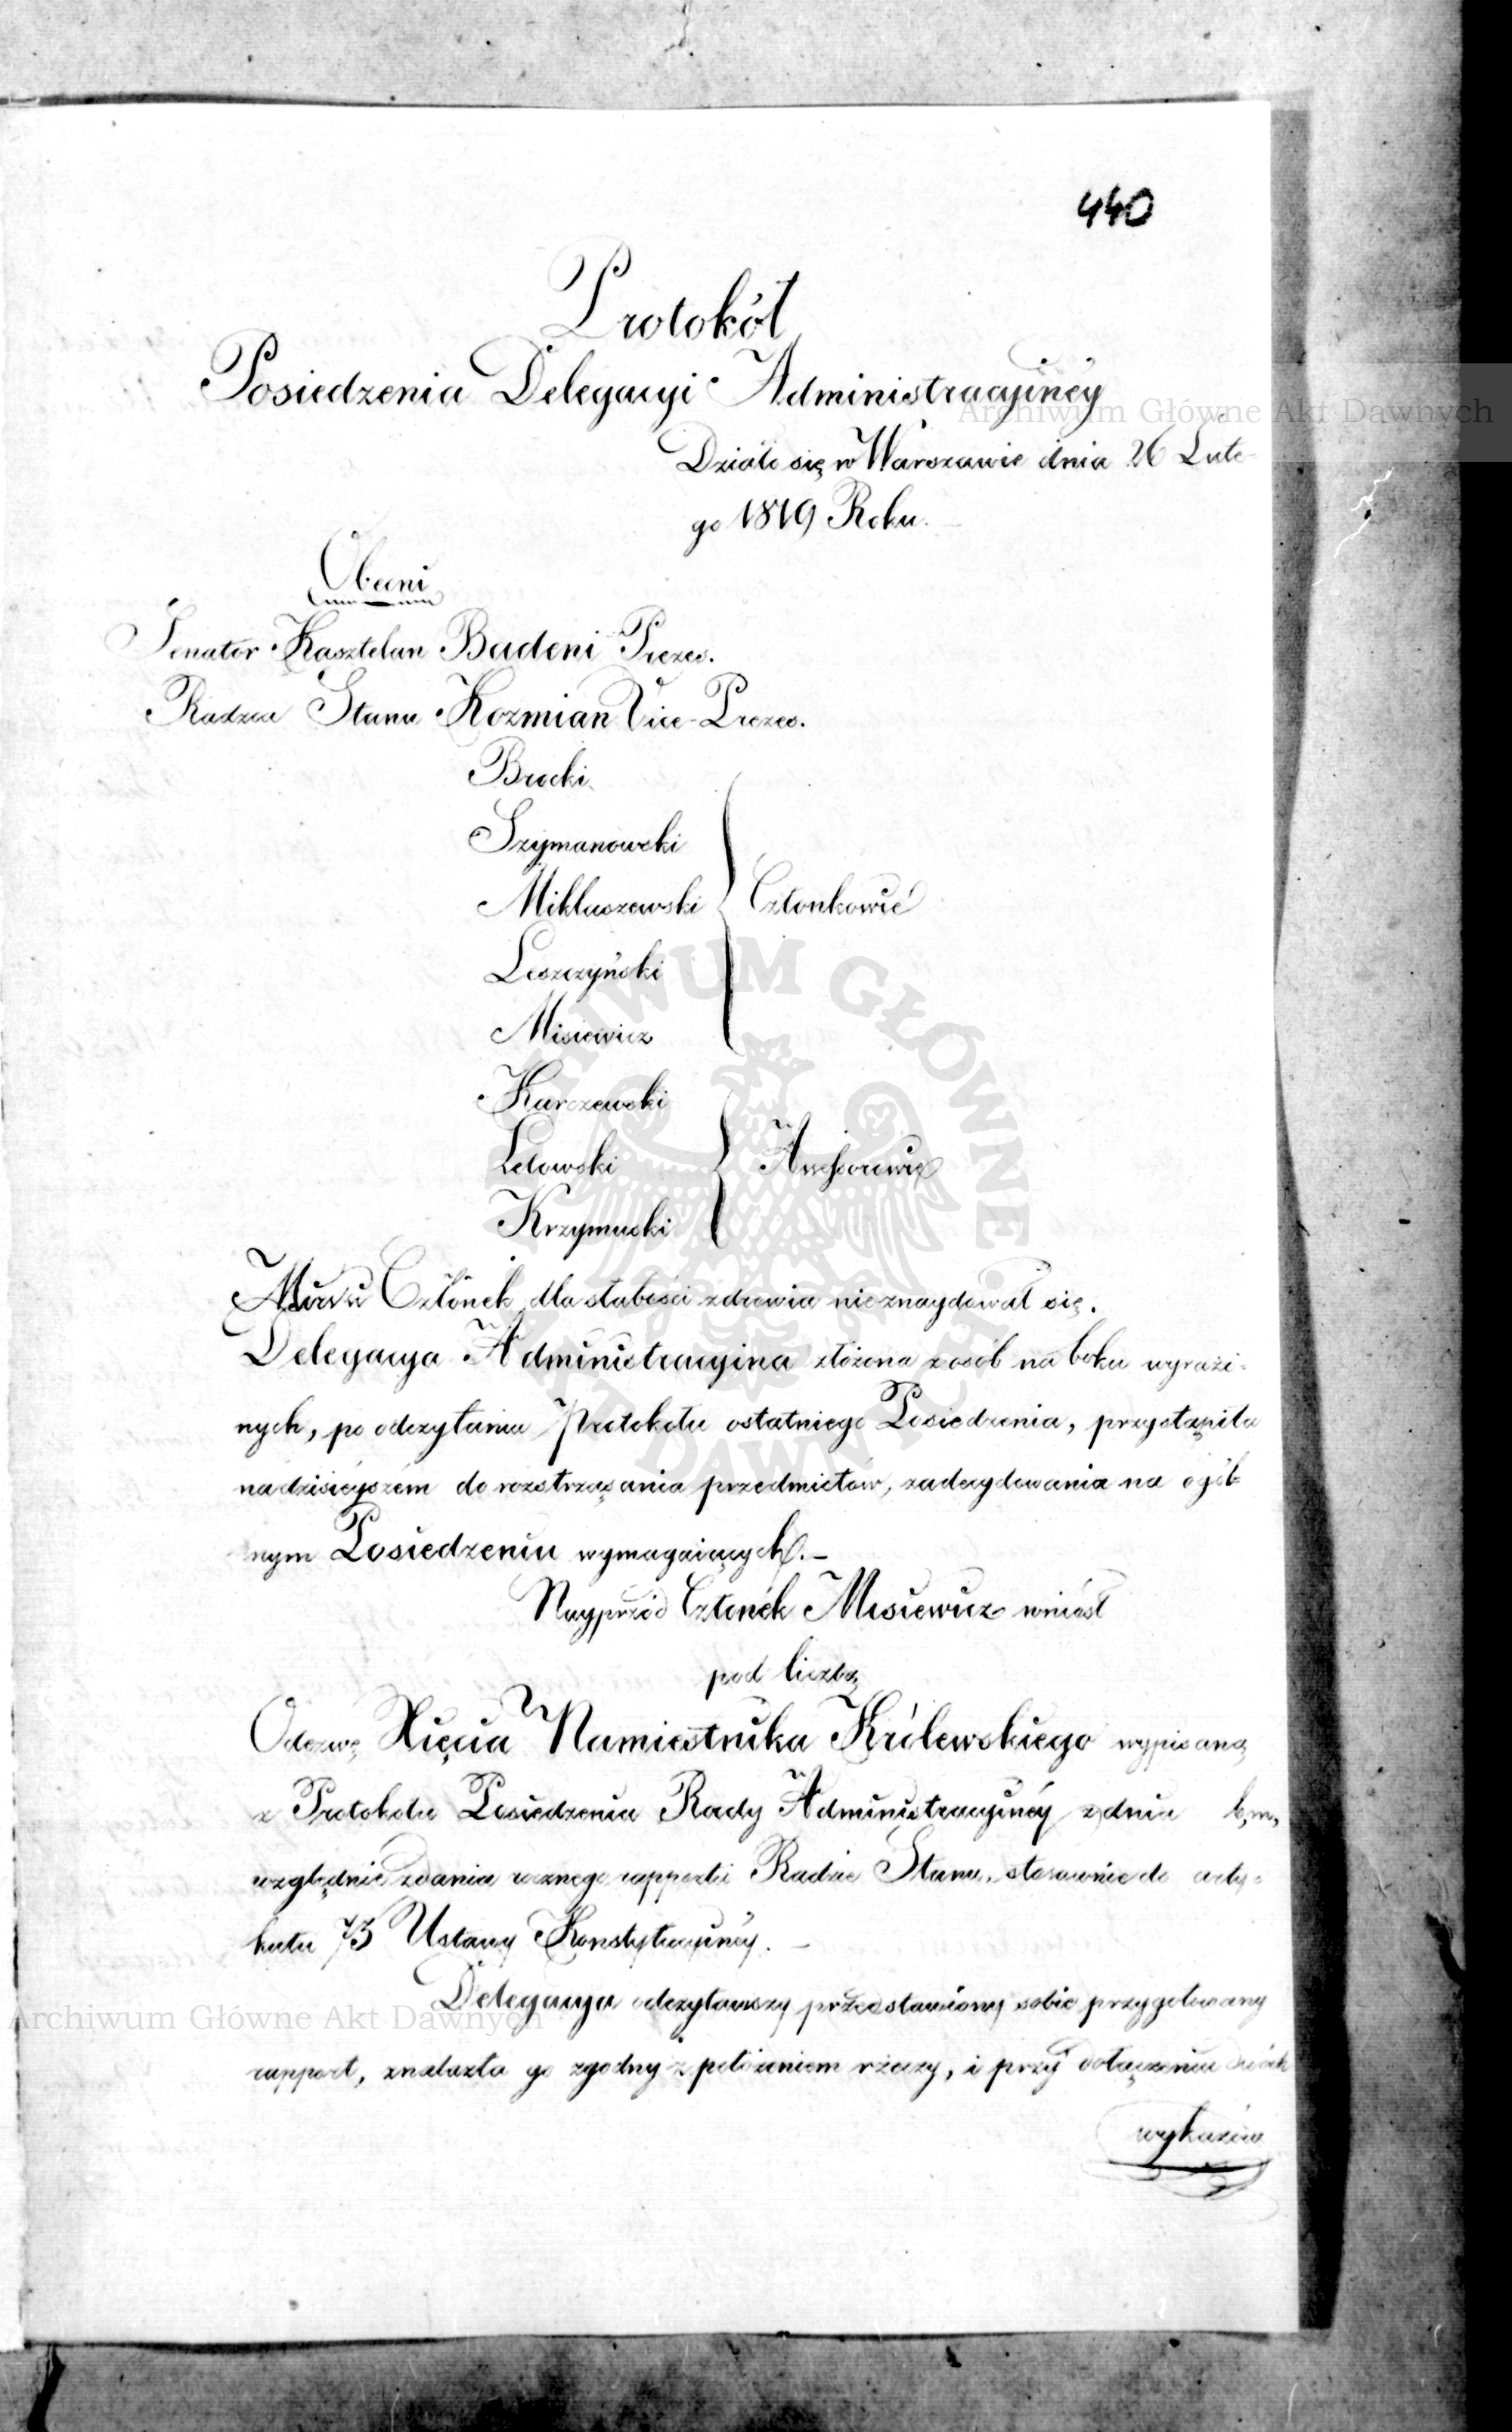 440
Protokół
Posiedzenia Delegacyi Administracyinéy
Działo się w Warszawie dnia 26 Lute-
go 1819 Roku.
Obecni
Senator Kasztelan Badeni Prezes.
Radzca Stanu Kozmian Vice-Prezes.
Brocki
Szymanowski
Miklaszewski Członkowie
Leszczyński
Misiewicz
Karczewski
Letowski Assessorowie
Krzymuski
Członek dla słabości zdrowia nieznaydował się.
Delegacya Administracyina złożona z osób na boku wyrażo-
nych, po odczytaniu Protokołu ostatniego Posiedzenia, przystąpiła
na dzisiéyszém do rozstrząsania przedmiotów, zadecydowania na ogól-
nym Posiedzeniu wymagaiących.-
Nayprzód Członek Misiewicz wniósł
pod liczbą
Odezwę Xięcia Namiestnika Królewskiego wypisaną
z Protokołu Posiedzenia Rady Administracyinéy z dnia b.m.
względnie zdania rocznego rapportu Radzie Stanu, stosownie do arty-
kułu 73 Ustawy Konstytucyinéy. -
Delegacya odczytawszy przedstawiony sobie przygotowany
rapport, znalazła go zgodny z położeniem rzeczy, i przy dołączeniu
wykazów
Archiwum Główne Akt Dawnych
Archiwum Główne Akt Dawnych
ARCHIWUM GŁÓWNE AKT DAWNYCH